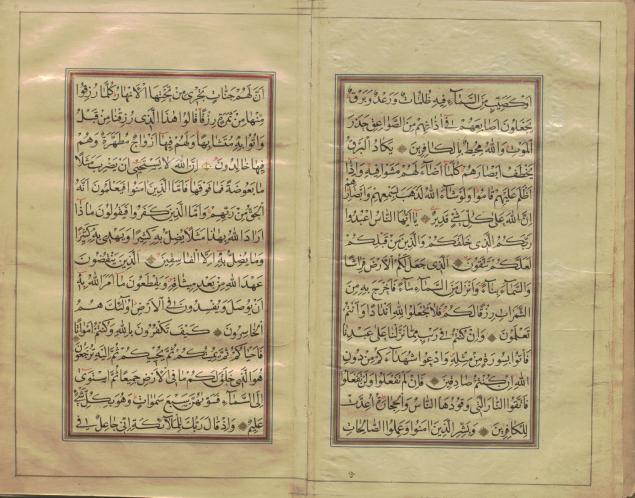 اوكصيب من السماء فيه ظلمات ورعد وبرق
يجعلون اصابعهم فى اذانهم من الصواعق حذر
الموت والله محيط بالكافرين يكاد البرق
يخطف ابصارهم كلما اضاء لهم مشوا فيه واذا
اظلم عليهم قاموا ولو شاء الله لذهب بسمعهم وابصارهم
ان الله على كل شئ قدير يا ايها الناس اعبدوا
ربكم الذى خلقكم والذين من قبلكم
لعلكم تتقون الذى جعل لكم الارض فراشا
والسماء بناء وانزل من السماء ماء فاخرج به من
الثمرات رزقا لكم فلا تجعلوا لله اندادا وانتم
تعلمون وان كنتم فى ريب مما نزلنا على عبدنا
فأتوا بسورة من مثله وادعوا شهداءكم من دون
الله ان كنتم صادقين فان لم تفعلوا ولن تفعلوا
فاتقوا النار التى وقودها الناس والحجارة اعدت
للكافرين وبشر الذين امنوا وعملوا الصالحات
ان لهم جنات تجرى من تحتها الانهار كلما رزقوا
منها من ثمرة رزقا قالوا هذا الذى رزقنا من قبل
واتوا به متشابها ولهم فيها ازواج مطهرة وهم
فيها خالدون ان الله لا يستحيى ان يضرب مثلا
ما بعوضة فما فوقها فاما الذين امنوا فيعلمون انه
الحق من ربهم واما الذين كفروا فيقولون ماذا
اراد الله بهذا مثلا يضل به كثيرا ويهدى به كثيرا
وما يضل به الا الفاسقين الذين ينقضون
عهد الله من بعد ميثاقه ويقطعون ما امر الله به
ان يوصل ويفسدون فى الارض اولئك هم
الخاسرون كيف تكفرون بالله وكنتم امواتا
فاحياكم ثم يميتكم ثم يحييكم ثم اليه ترجعون
هو الذى خلق لكم ما فى الارض جميعا ثم استوى
الى السماء فسويهن سبع سموات وهو بكل شئ
عليم واذ قال ربك للملائكة انى جاعل فى